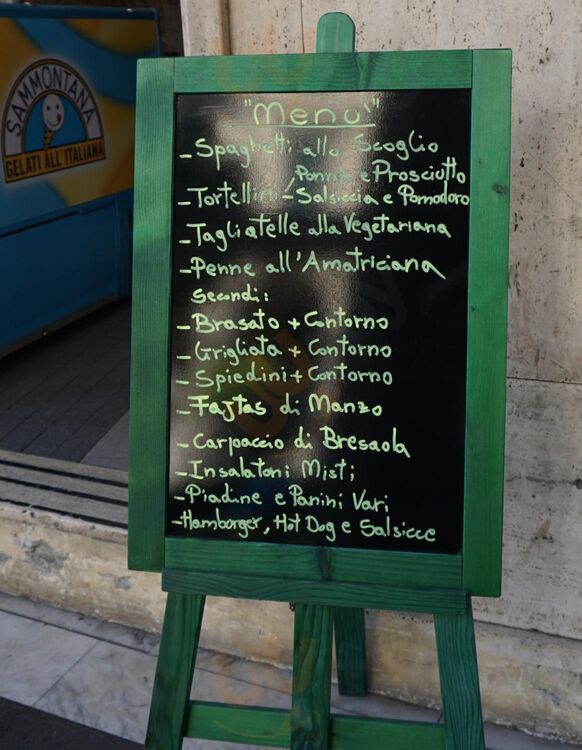 SAMMONTANA
GELATI ALL'ITALIANA
"Menù"
- Spaghetti allo Scoglio
Panna e Prosciutto
- Tortellini - Salsiccia e Pomodoro
- Tagliatelle alla Vegetariana
- Penne all'Amatriciana
Secondi:
- Brasato + Contorno
- Grigliata + Contorno
- Spiedini + Contorno
- Fajtas di Manzo
- Carpaccio di Bresaola
- Insalatoni Misti
- Piadine e Panini Vari
- Hamborger, Hot Dog e Salsicce